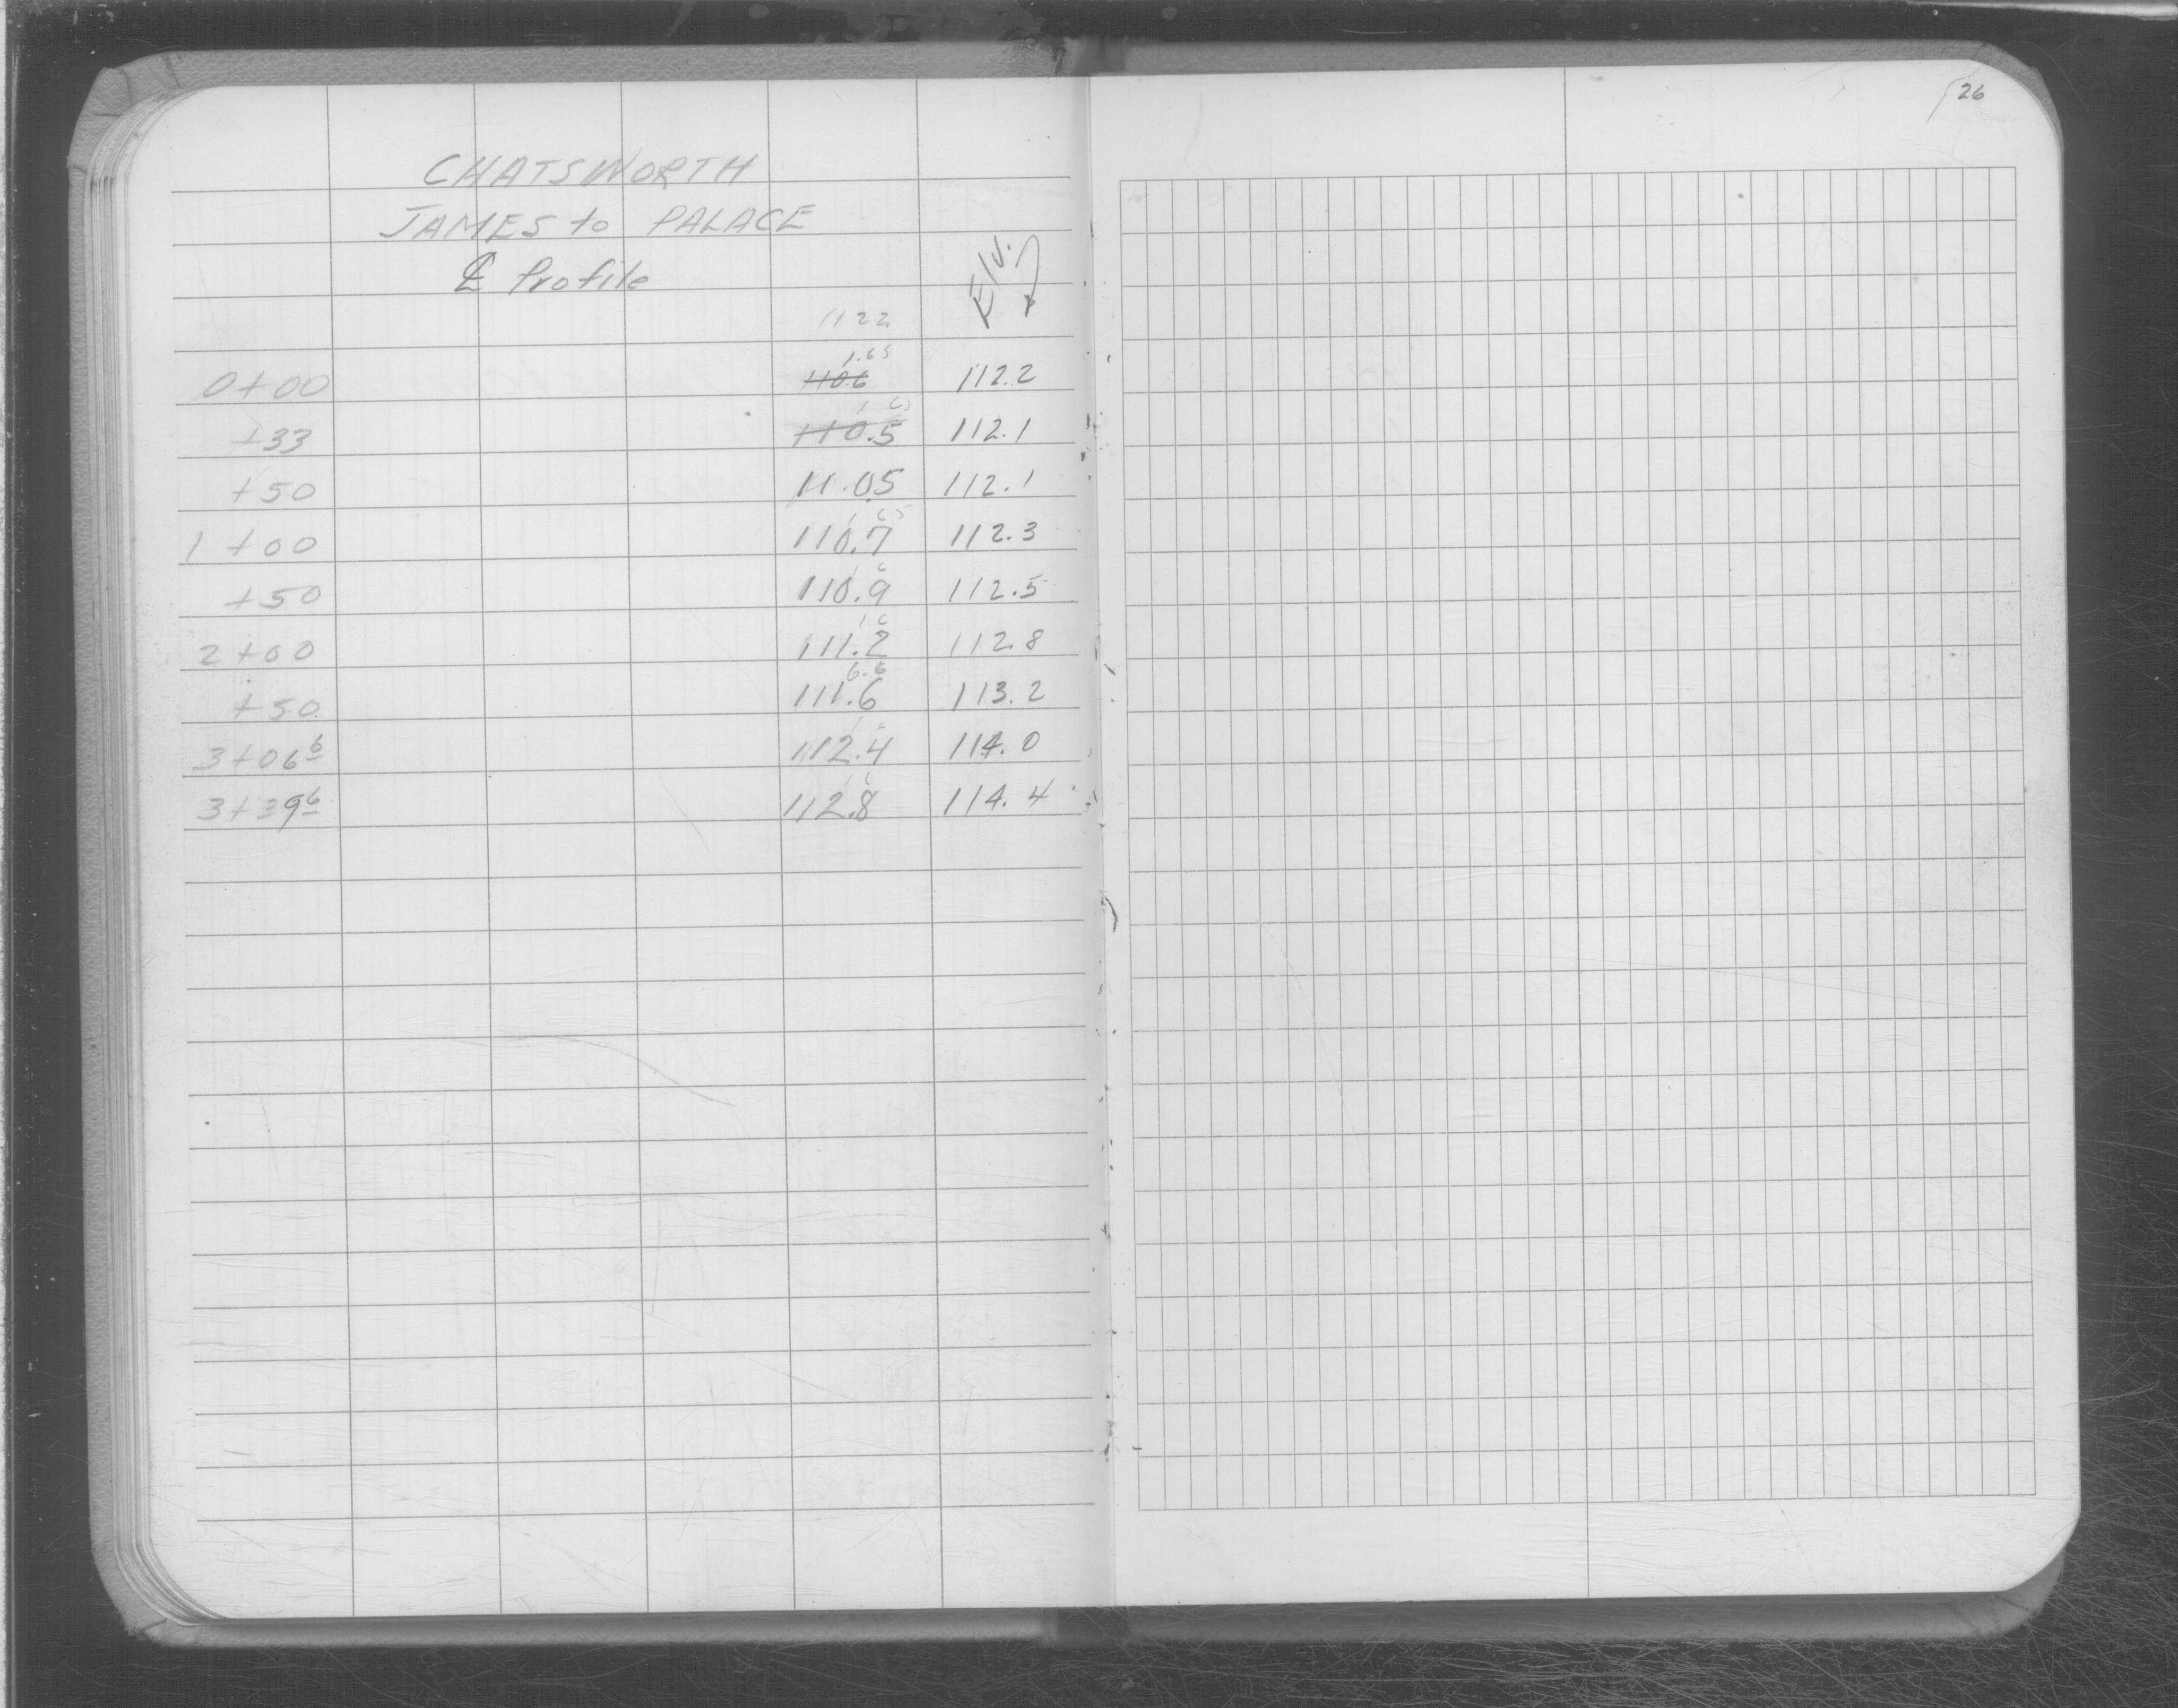 26
CHATSWORTH
JAMES to PALACE
℄ Profile
Elv.
1122
1.65
0+00 110.6 112.2
1 65
+33 110.5 112.1
+50 11.05 112.1
1 65
1+00 110.7 112.3
1 6
+50 110.9 112.5
1 6
2+00 111.2 112.8
6.6
+50 111.6 113.2
3+06 6 112.4 114.0
1 6
3+39 6 112.8 114.4